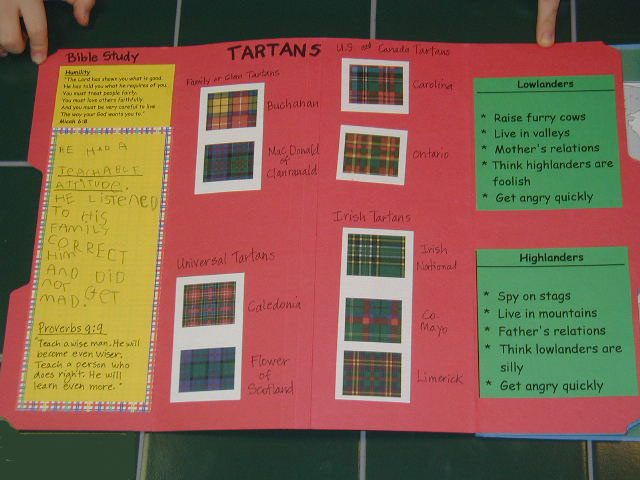 Bible Study
Humility
"The Lord has shown you what is good.
He has told you what he requires of you.
You must treat people fairly.
You must love others faithfully.
And you must be very careful to live
The way your God wants you to."
Micah 6:8
HE HAD A
TEACHABLE
ATTITUDE.
HE LISTENED
TO HIS
FAMILY
CORRECT
HIM
AND DID
NOT GET
MAD.
Proverbs 9:9
"Teach a wise man. He will
become even wiser.
Teach a person who
does right. He will
learn even more."
TARTANS
Family or Clan Tartans
Buchanan
MacDonald
of
Clanranald
Universal Tartans
Caledonia
Flower
of
Scotland
U.S. and Canada Tartans
Carolina
Ontario
Irish Tartans
Irish
National
Co.
Mayo
Limerick
Lowlanders
* Raise furry cows
* Live in valleys
* Mother's relations
* Think highlanders are
foolish
* Get angry quickly
Highlanders
* Spy on stags
* Live in mountains
* Father's relations
* Think lowlanders are
silly
* Get angry quickly